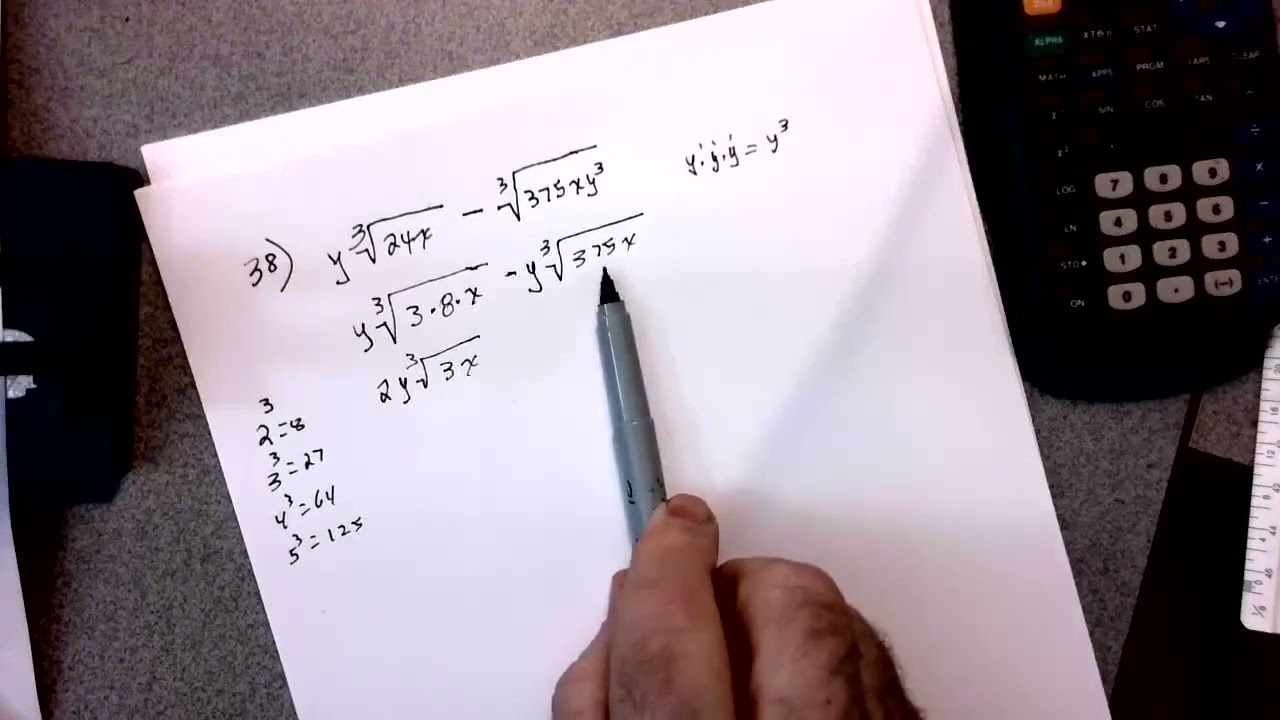 38) y ∛24x - ∛375xy³
y·y·y = y³
y ∛3·8·x - y ∛375x
2y ∛3x
2³=8
3³=27
4³=64
5³=125
2nd
ALPHA X,T,θ,n STAT
MATH APPS PRGM VARS CLEAR
SIN COS TAN ^
x² ÷
LOG 7 8 9
LN 4 5 6 −
STO▸ 1 2 3 +
ON 0 . (−) ENTER